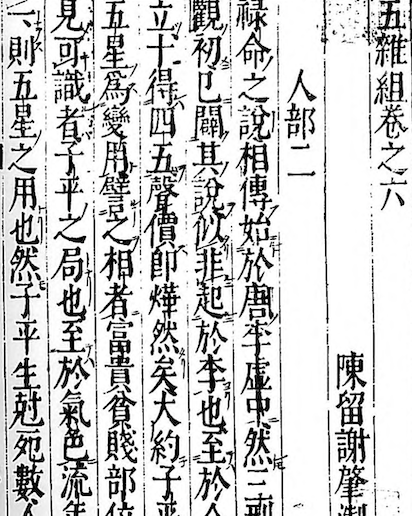 五雜組卷之六
陳留謝肇淛
人部二
祿命之說相傳始於唐李虛中然三刑
觀初已闢其說似非起於李也至於
立十得四五聲價即燁然矣大約子平
五星爲變用譬之相者富貴貧賤部位
見可識者子平之局也至於氣色流年
則五星之用也然子平生尅死數